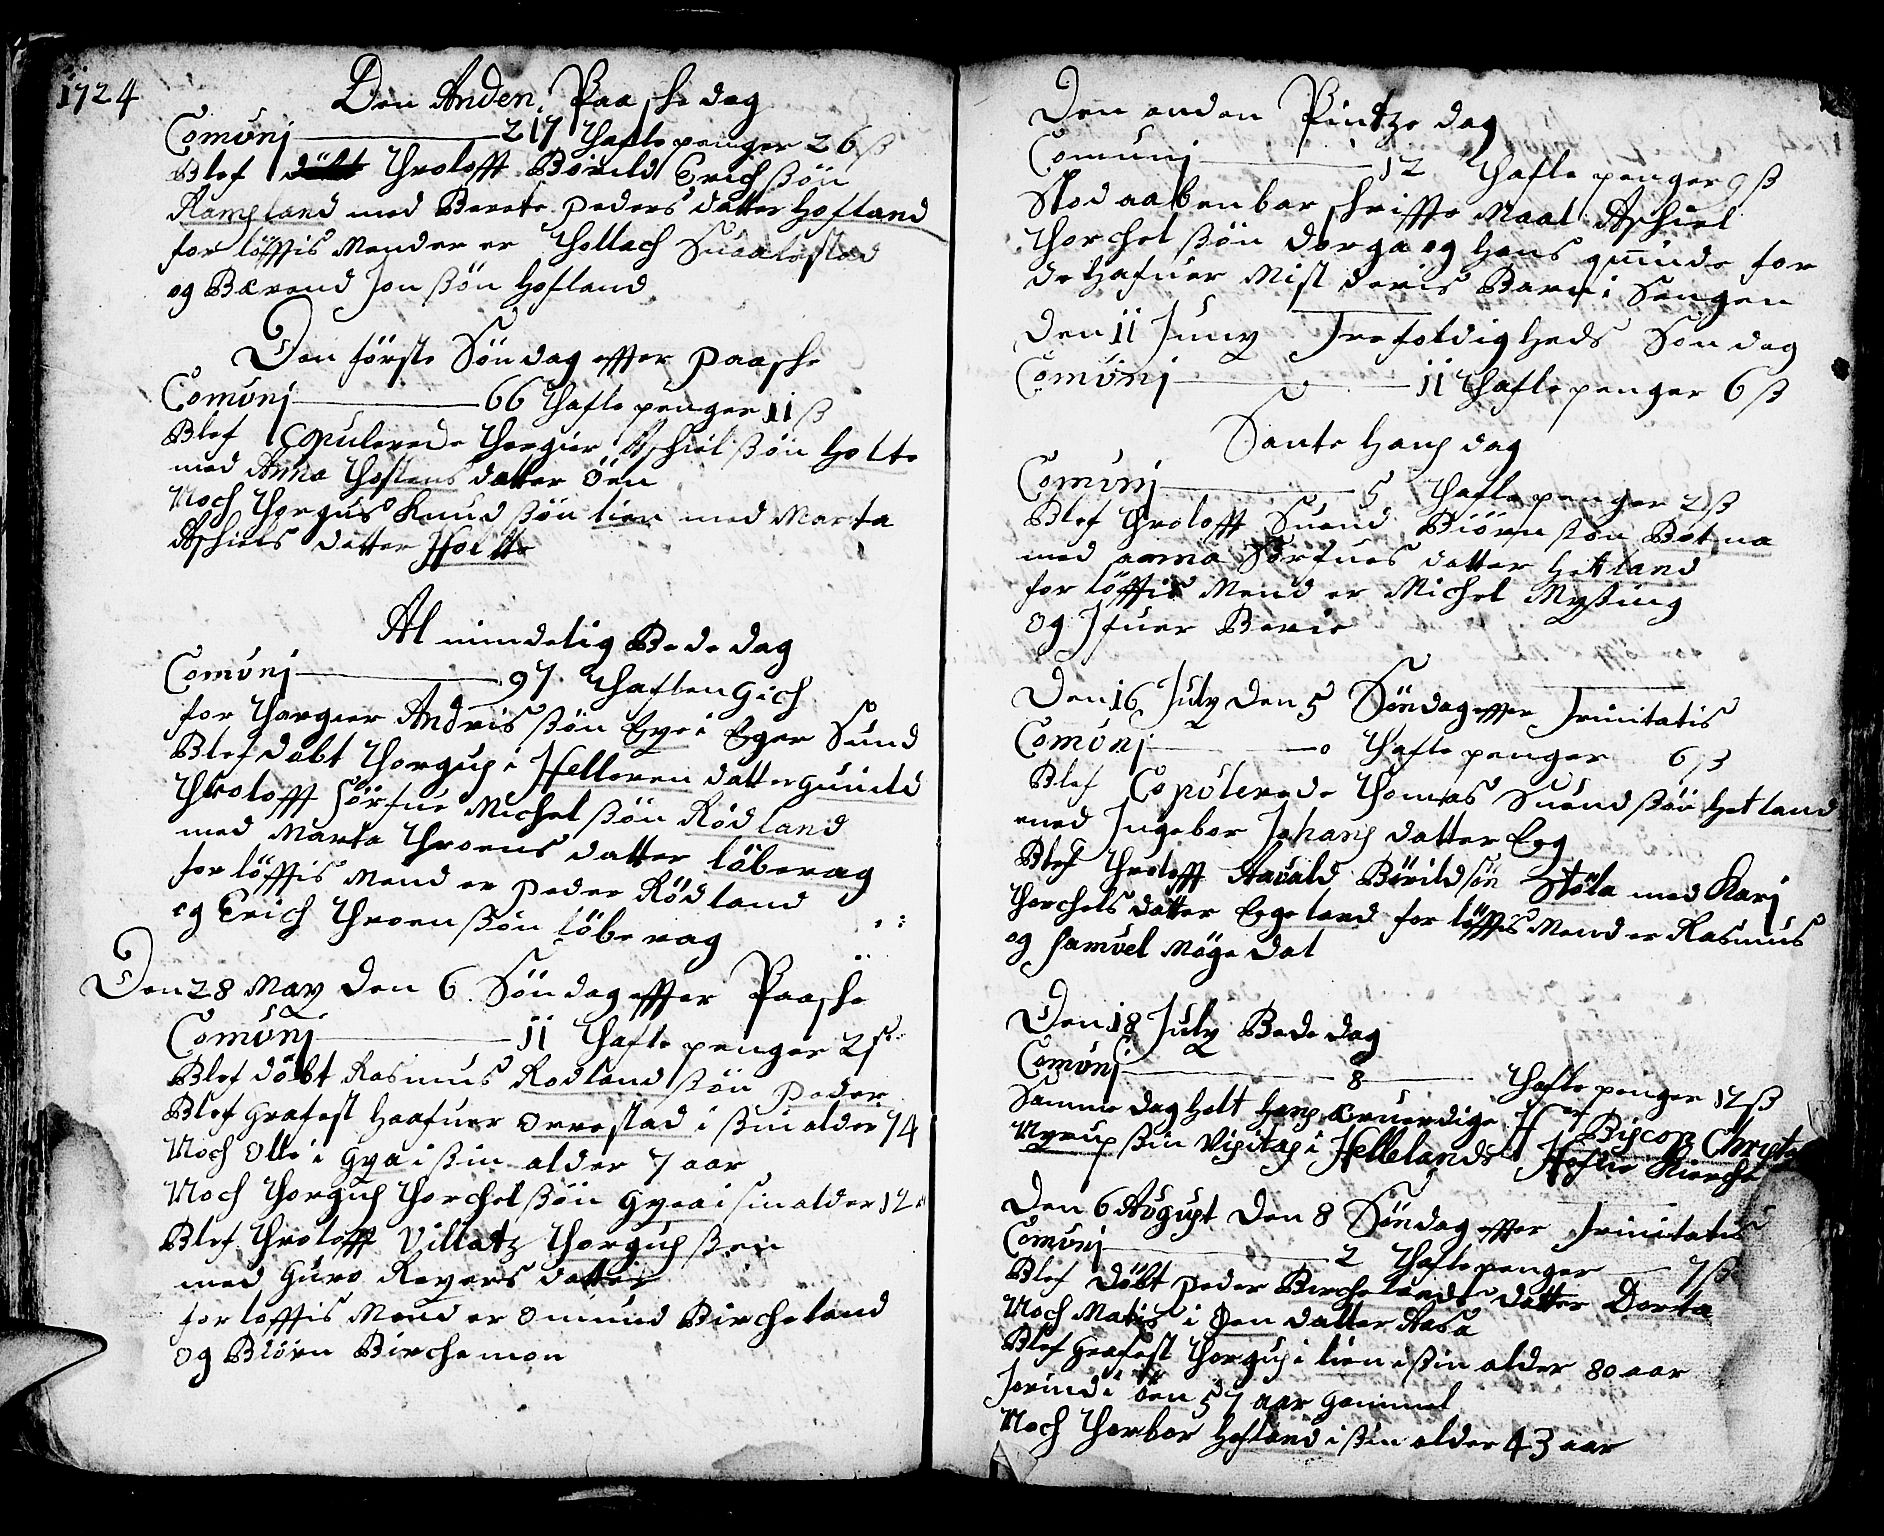 1724
Den Anden Paaske dag
Comunj 217 Thafle penger 26 ß
Blef Throlofft Børild Erichßön
Rampland med Berete Peders datter Hofland
for löffis Mender er Thollach Suaalestad
og Bærend Jonßön Hofland
Den förste Söndag effter Paaske
Comunj 66 Thafle penger 11 ß
Blef Copulerede Thorgier Aschielßön Holte
med Anna Thostens datter Öen
Noch Thorgus Knudßön Lien med Marta
Aschiels datter Holte
Almindelig Bede dag
Comunj 97 Thaflen gich
for Thorgier Andrisßön Eye i Eger Sund
Blef döbt Thorgus i Helleren datter Gunild
Throlofft Sörfue Michelßön Rödland
med Marta Throens datter Löberag
for löffis Mend er Peder Rödland
og Erich Throenßön Löberag
Den 28 May den 6 Söndag effter Paaske
Comunj 11 Thafle penger 2 ß
Blef döbt Rasmus Rodland ßön Peder
Blef Grafest Haafuer Orrestad i ßin alder 74
Noch Olle i Gya i ßin alder 7 aar
Noch Thorgus Thorchelßön Gyea i sin alder 12
Blef Throlofft Villatz Thorgusßen
med Guro Reyers datter
for loffis Mend er Omund Bircheland
og Biörn Birchemon
Den anden Pintze dag
Comunj 12 Thafle penger 9 ß
Stod aabenbar skriffte Maal Aschiel
Thorchelßön Dorga og Hans quinde for
de Hafuer Mist deris Barn i Sengen
Den 11 Juny Trefoldigheds Sondag
Comunj 11 Thafle penger 6 ß
Sante Hans dag
Comunj 5 Thafle penger 2 ß
Blef Throlofft Suend Biörnßön Botna
med anna Sörfues datter Hetland
for löffis Mend er Michel Myßing
og Ifuer Berie
Den 16 July den 5 Söndag effter Trinitatis
Comunj 0 Thafle penger 6 ß
Blef Copulerede Thomas Suendßön Hetland
med Ingebor Johans datter Eeg
Blef Throlofft Aauald Börildsön Stöla med Karj
Thorchels datter Eegeland for löffis Mend er Rasmus
og Samuel Mögedal
Den 18 July Bede dag
Comunj 8 Thafle penger 12 ß
Samme dag Holt Hans æruerdige Her Biscop Christe
Nyrup ßin Visitas i Hellelands Hofue Kierche
Den 6 August den 8 Söndag effter Trinitatis
Comunj 2 Thafle penger 7 ß
Blef Döbt Peder Birchelands datter Dorta
Noch Matis i Öen datter Aasa
Blef Grafest Thorgus i Lien i ßin alder 80 aar
Jorind i Öen 57 aar Gammel
Noch Thorbor Hofland i ßin alder 43 aar